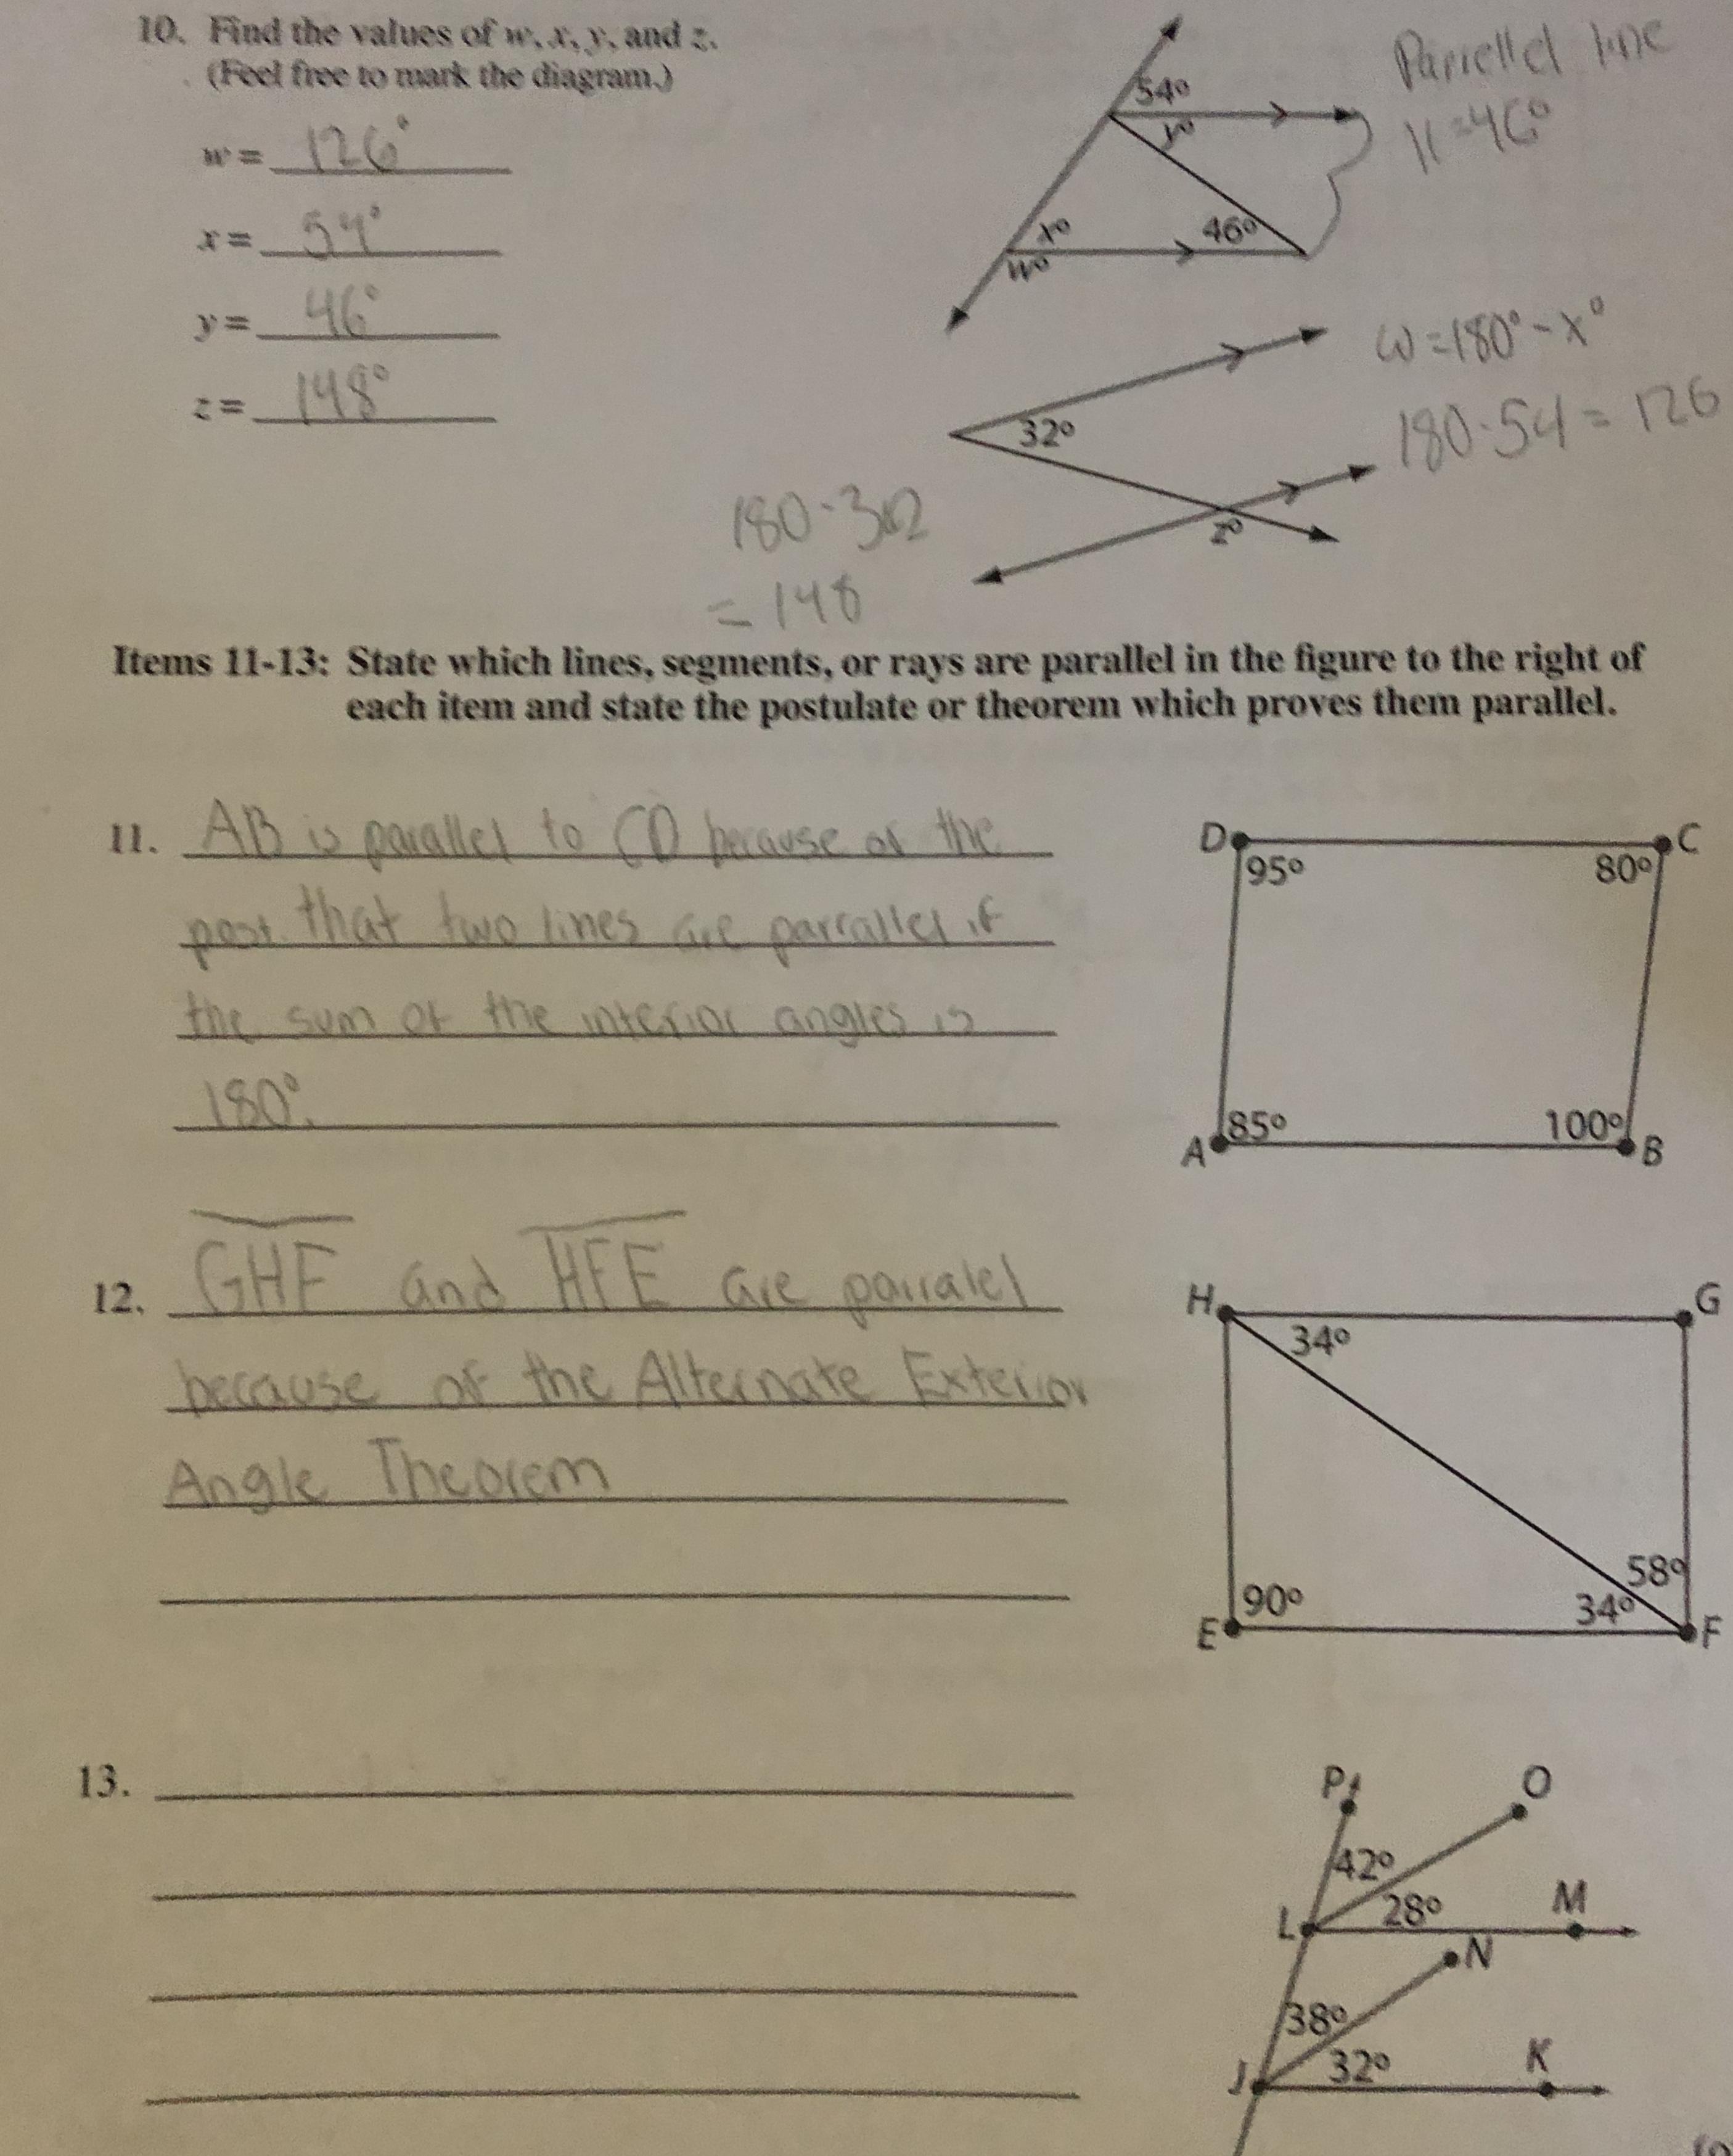 10. Find the values of w, x, y, and z.
(Feel free to mark the diagram.)
w = 126°
x = 54°
y = 46°
z = 148°
54°
y°
x°
46°
w°
Parrellel line
11 = 46°
32°
z°
w = 180° - x°
180 - 54 = 126
180 - 32
= 148
Items 11-13: State which lines, segments, or rays are parallel in the figure to the right of
each item and state the postulate or theorem which proves them parallel.
11. AB is parallel to CD because of the
post. that two lines are parrallel if
the sum of the interior angles is
180°.
D C
95° 80°
85° 100°
A B
12. GHF and HFE are parralel
because of the Alternate Exterior
Angle Theorem
H G
34°
58°
90° 34°
E F
13.
P O
42°
28° M
L
N
38°
32° K
J